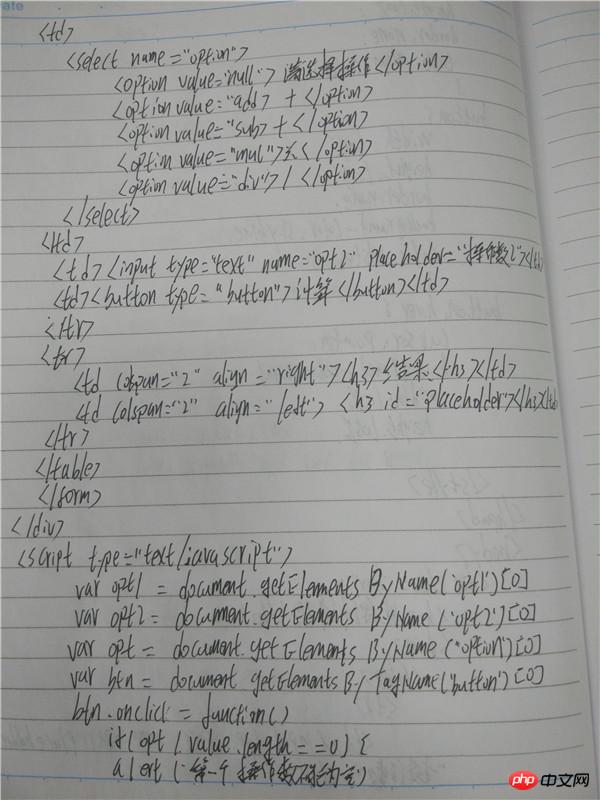 <td>
<select name="option">
<option value="null">请选择操作</option>
<option value="add> + </option>
<option value="sub> + </option>
<option value="mul">×</option>
<option value="div">/ </option>
</select>
</td>
<td><input type="text" name="opt2" placeholder="操作数2"></td>
<td><button type="button">计算</button></td>
</tr>
<tr>
<td colspan="2" align="right"><h3>结果:</h3></td>
<td colspan="2" align="left"> <h3 id="placeholder"></h3></td>
</tr>
</table>
</form>
</div>
<script type="text/javascript">
var opt1 = document.getElementsByName('opt1')[0]
var opt2 = document.getElementsByName('opt2')[0]
var opt = document.getElementsByName("option")[0]
var btn = document getElementsByTagName('button')[0]
btn.onclick = function()
if(opt1.value.length==0){
alert('第一个操作数不能为空')
php中文网